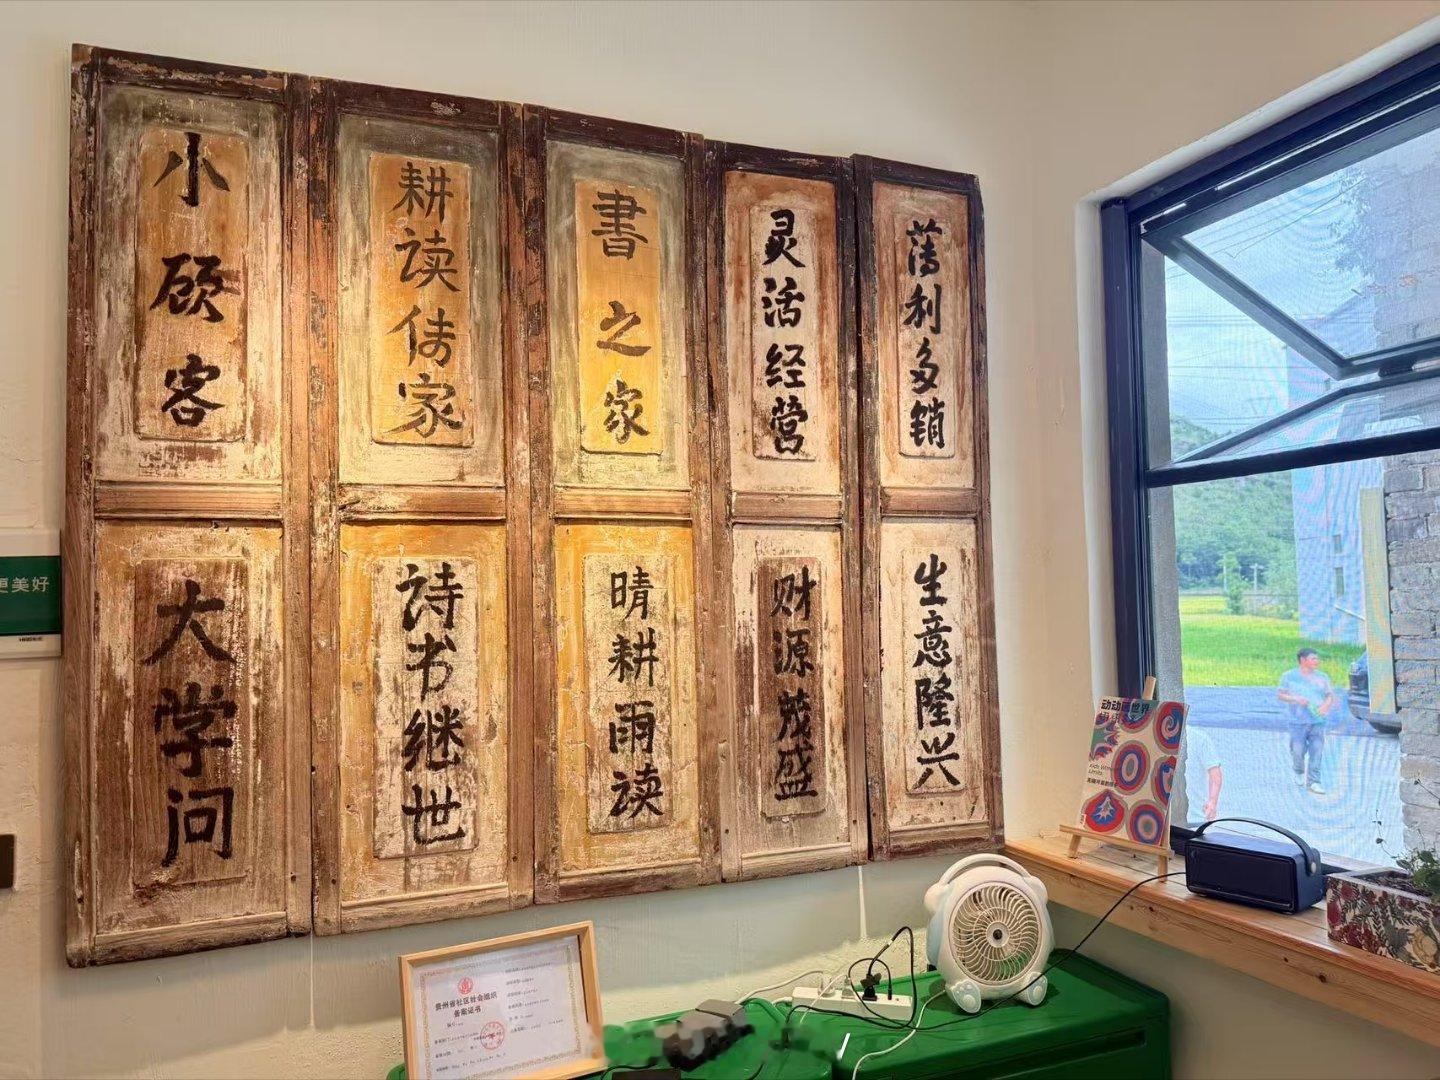 小顾客
耕读传家
書之家
灵活经营
薄利多销
大学问
诗书继世
晴耕雨读
财源茂盛
生意隆兴
更美好
贵州省社区社会组织
备案证书
动动画世界
Kids Without Limits